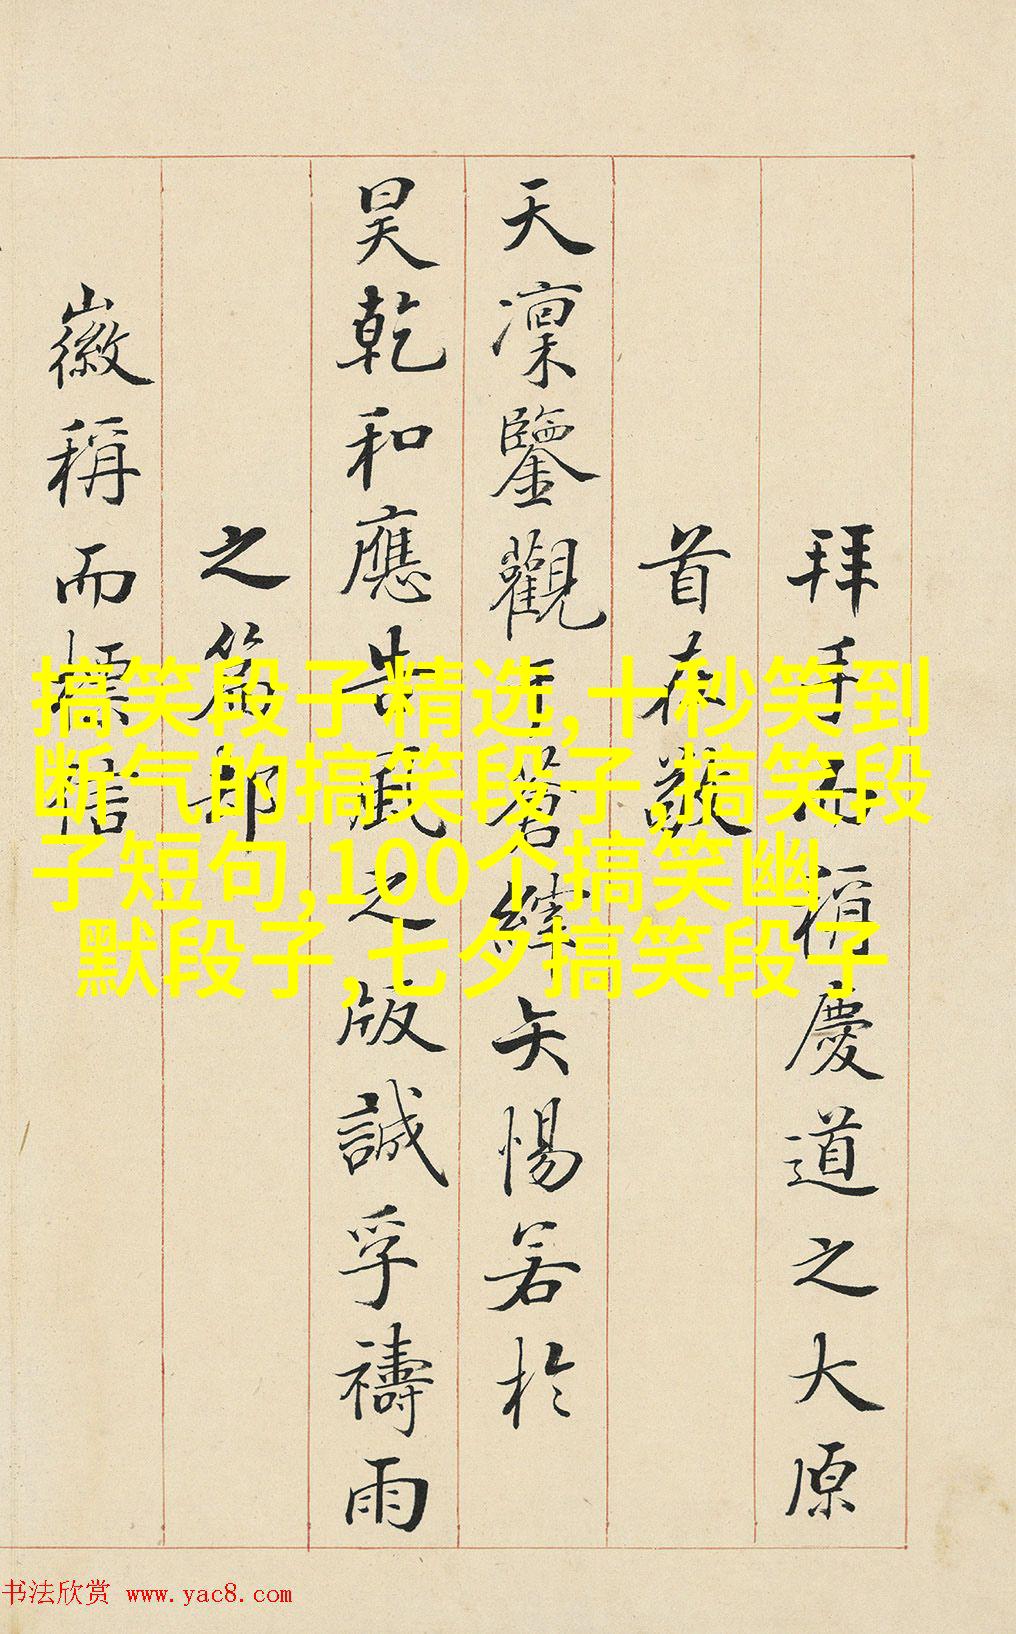 拜手而稱慶道之大原
首在敬
天凜鑒觀于蒼縡矢惕若於
昊乾和應告虔之版誠孚禱雨
之篇
徽稱而標
搞笑段子精选,十秒笑到
断气的搞笑段子,搞笑段
子短句,100个搞笑幽
默段子,七夕搞笑段子
书法欣赏 www.yac8.com